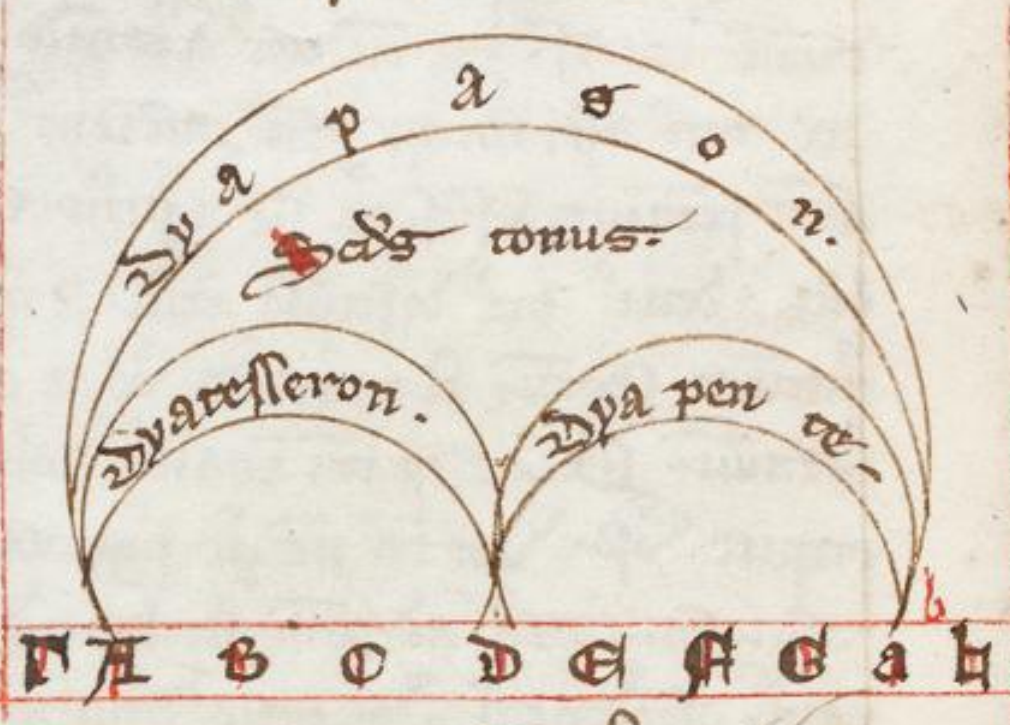 Dyapason.
Scds tonus.
Dyatesseron.
Dyapente
b
Γ A B C D E F G a h